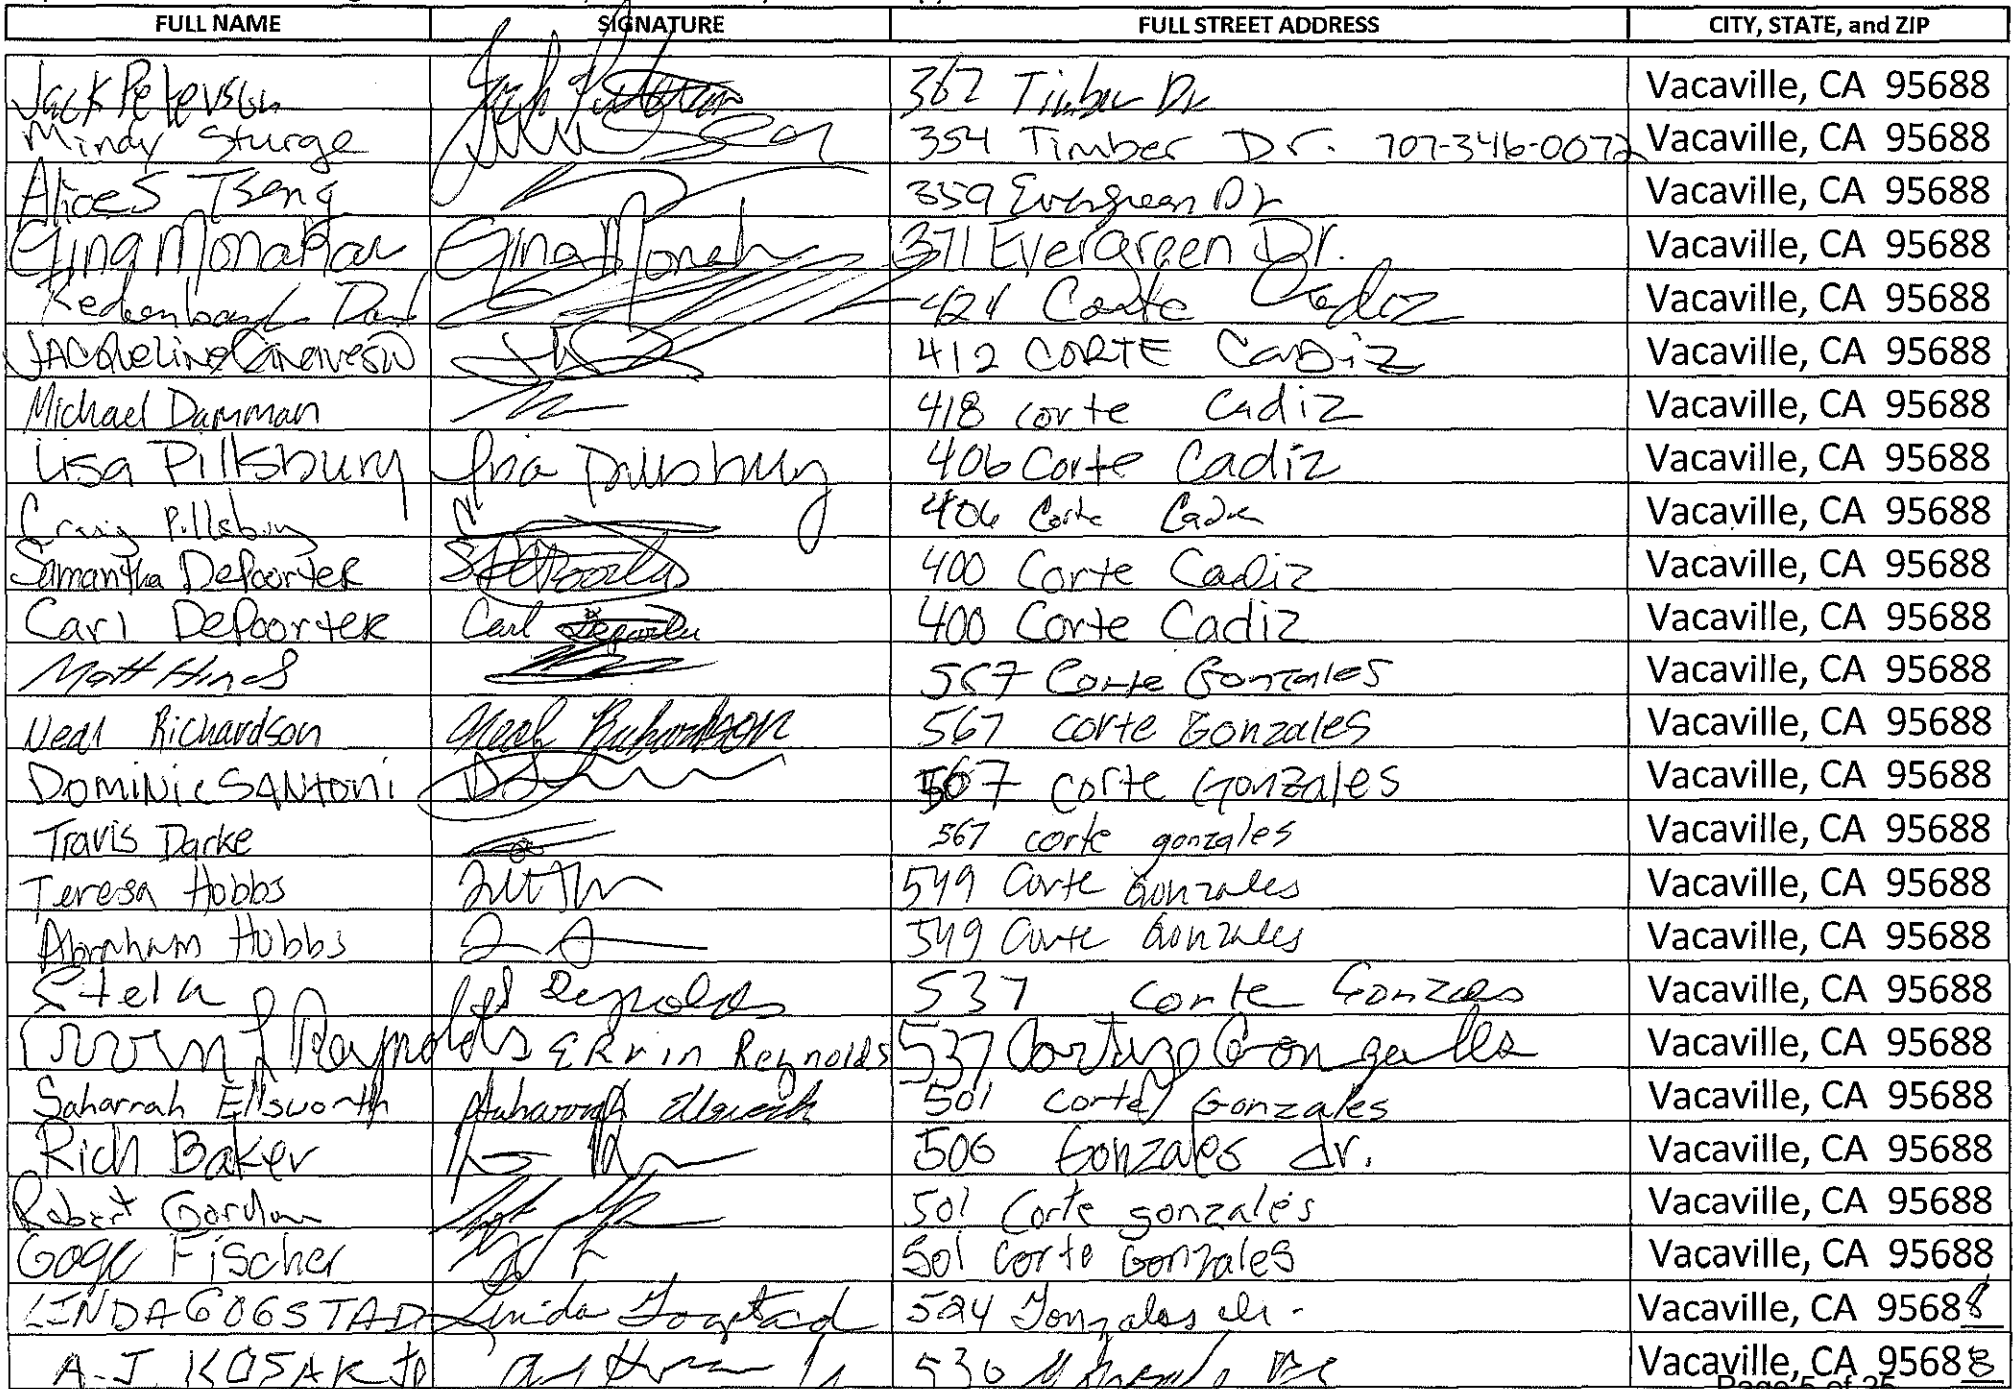 FULL NAME SIGNATURE FULL STREET ADDRESS CITY, STATE, and ZIP
Jack Peterson 362 Timber Dr Vacaville, CA 95688
Mindy Sturge 354 Timber Dr. 707-346-0072 Vacaville, CA 95688
Alice S Tseng 359 Evergreen Dr Vacaville, CA 95688
Gina Monahan Gina Monah 371 Evergreen Dr. Vacaville, CA 95688
424 Corte Cadiz Vacaville, CA 95688
JACQUELINE 412 CORTE CADIZ Vacaville, CA 95688
Michael Damman 418 Corte Cadiz Vacaville, CA 95688
Lisa Pillsbury Lisa Pillsbury 406 Corte Cadiz Vacaville, CA 95688
Craig Pillsbury 406 Corte Cadiz Vacaville, CA 95688
Samantha DePoorter 400 Corte Cadiz Vacaville, CA 95688
Carl DePoorter Carl 400 Corte Cadiz Vacaville, CA 95688
Matt Hines 567 Corte Gonzales Vacaville, CA 95688
Neal Richardson Neal Richardson 567 corte Gonzales Vacaville, CA 95688
DOMINIC SANTONI 567 Corte Gonzales Vacaville, CA 95688
Travis Darke 567 corte gonzales Vacaville, CA 95688
Teresa Hobbs 549 Corte Gonzales Vacaville, CA 95688
Abraham Hobbs 549 Corte Gonzales Vacaville, CA 95688
Stela Reynolds 537 Corte Gonzales Vacaville, CA 95688
Reynolds ERvin Reynolds 537 Vacaville, CA 95688
Saharrah Ellsworth Saharrah Ellsworth 501 Corte Gonzales Vacaville, CA 95688
Rich Baker 506 Gonzales dr. Vacaville, CA 95688
Robert Gordon 501 Corte gonzales Vacaville, CA 95688
Gage Fischer 501 Corte Gonzales Vacaville, CA 95688
LINDA GOGSTAD Linda Gogstad 524 Gonzales dr. Vacaville, CA 95688
A.J. KOSAK JR 530 Vacaville, CA 95688
Page 5 of 25